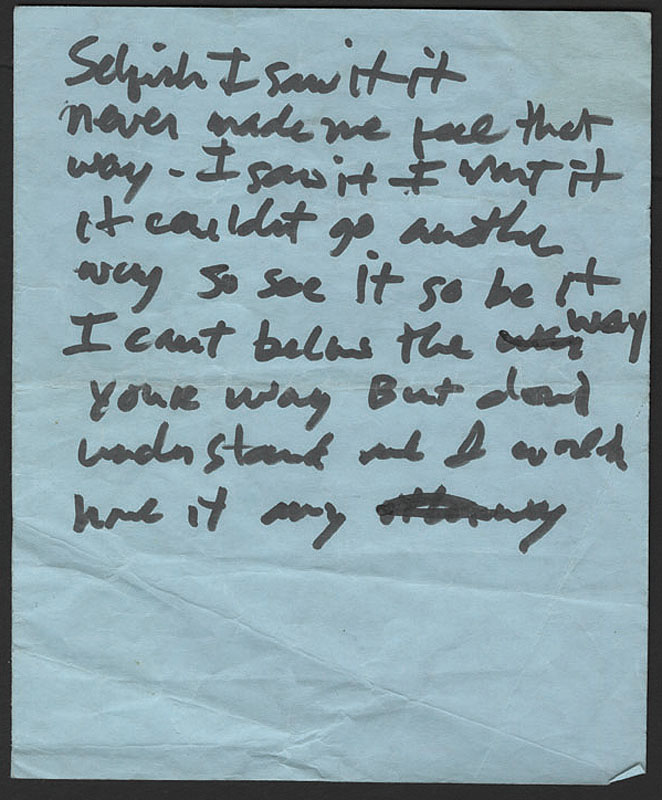 Selfish I saw it it
never made me feel that
way - I saw it I want it
it couldnt go another
way so see it so be it
I cant believe the way
youre way But dont
understand and I would
have it any way